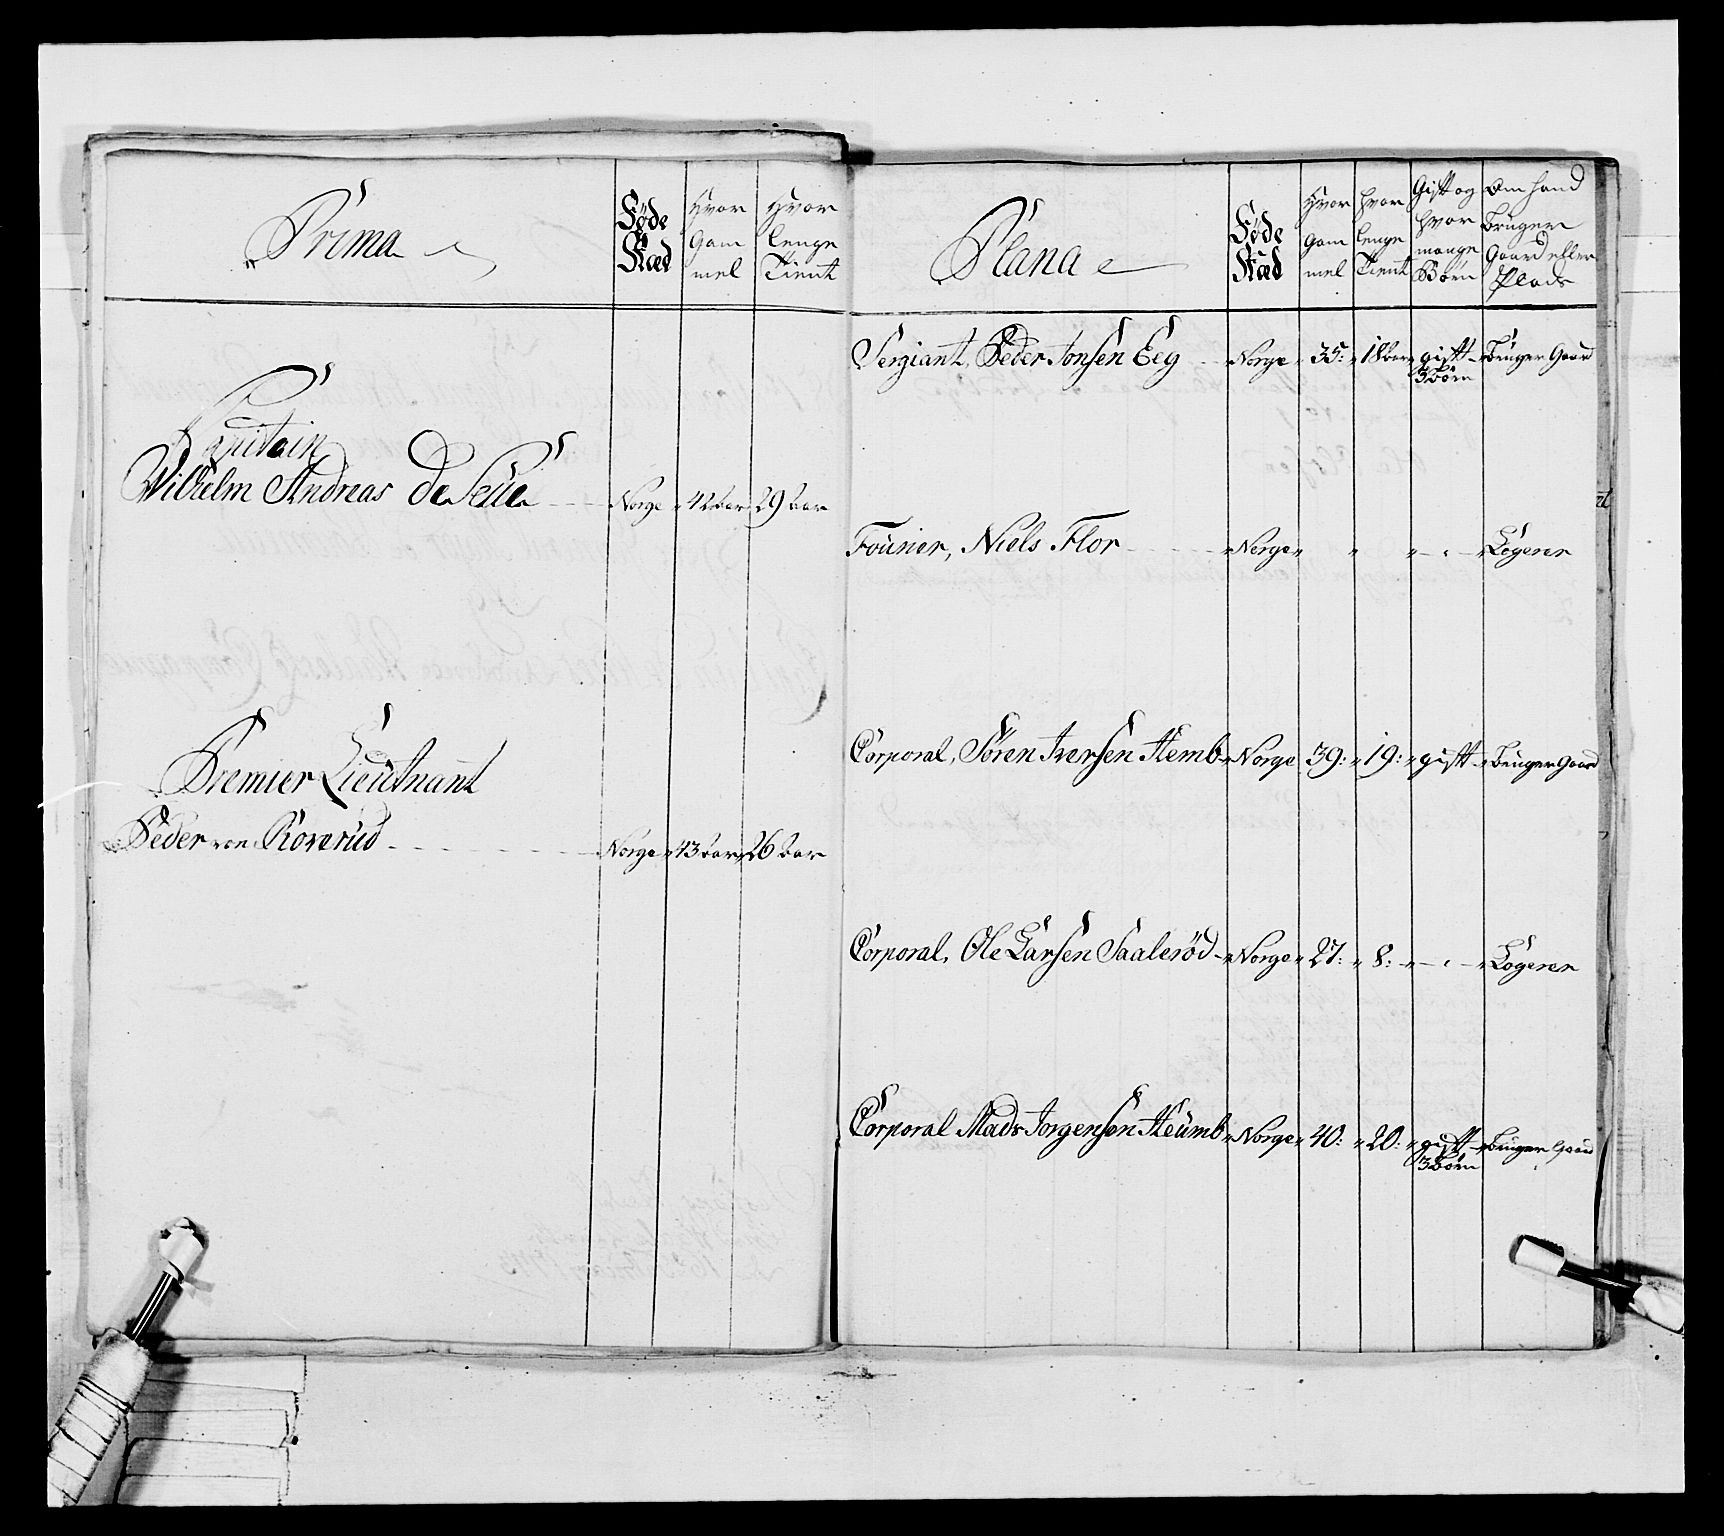 Prima
Føde Stæd
Hvor Gam mel
Hvor lenge Tient
Capitain
Wilhelm Andreas De Seue Norge 42 aar 29 aar
Premier Lieutnant
Peder von Roverud Norge 43 aar 26 aar
Plana
Føde Stæd
Hvor Gam mel
Hvor lenge Tient
Gift og hvor mange Børn
Om hand bruger Gaard eller Plads
Sergiant, Peder Jonsen Eeg Norge 35: 18 aar gift bruger Gaard
3 Børn
Fourier, Niels Flor Norge Logerer
Corporal, Søren Iversen Hemb Norge 39: 19: gift bruger Gaard
Corporal, Ole Larsen Saalerød Norge 27: 8: Logerer
Corporal Mads Jorgensen Heumb Norge 40: 20: gift bruger Gaard
3 Børn